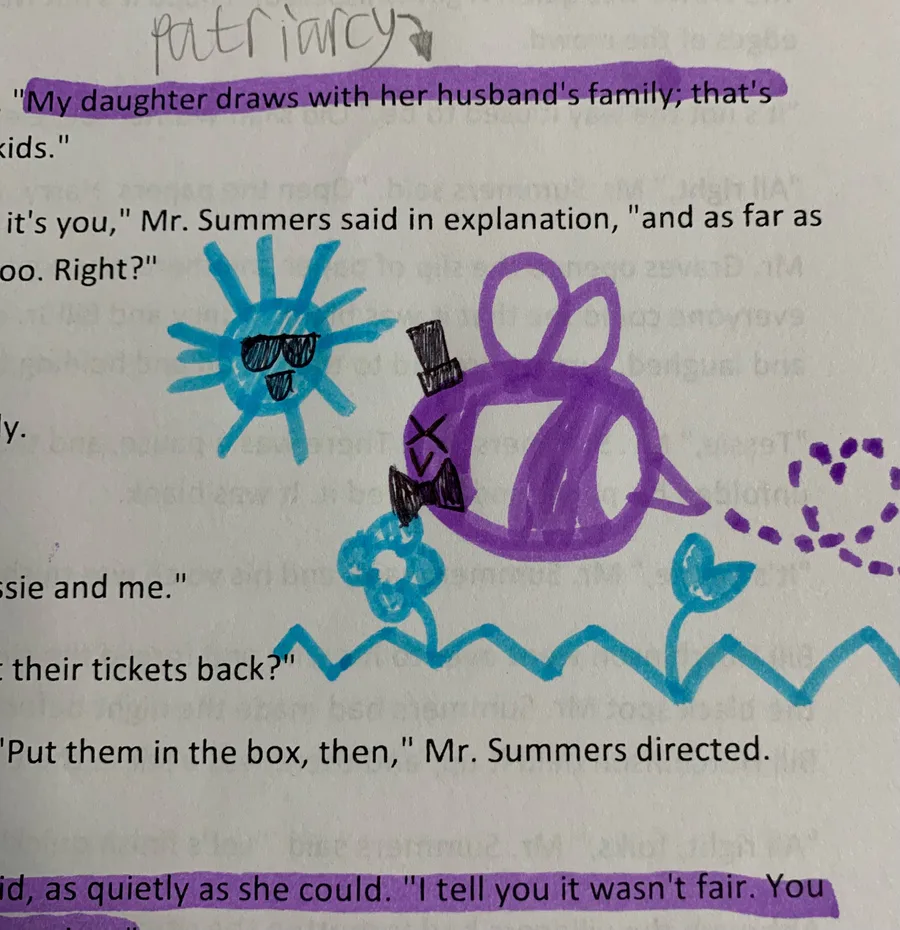 patriarcy
"My daughter draws with her husband's family; that's
kids."
it's you," Mr. Summers said in explanation, "and as far as
oo. Right?"
ly.
ssie and me."
t their tickets back?"
"Put them in the box, then," Mr. Summers directed.
id, as quietly as she could. "I tell you it wasn't fair. You